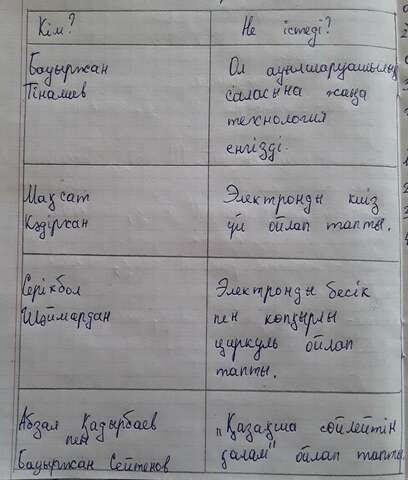 Кім?
Не істеді?
Бауыржан
Тіналиев
Ол ауылшаруашылық
саласына жаңа
технология
енгізді.
Мақсат
Кәдірхан
Электронды киіз
үй ойлап тапты.
Серікбол
Шәймардан
Электронды бесік
пен көпқырлы
циркуль ойлап
тапты.
Абзал Қадырбаев
пен
Бауыржан Сейтенов
"Қазақша сөйлейтін
қалам" ойлап тапты.